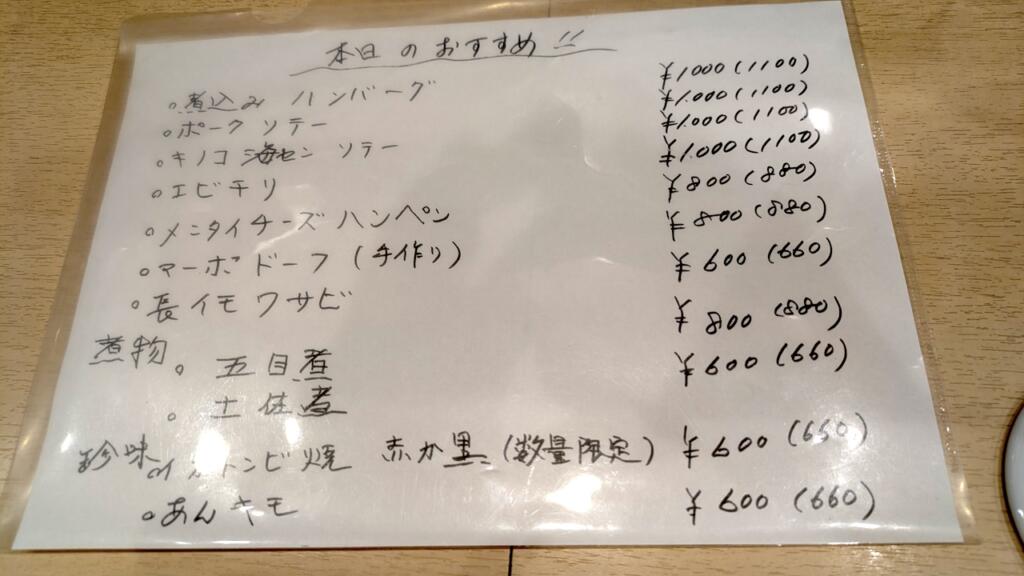 本日のおすすめ!!
。煮込み ハンバーグ ¥1000(1100)
。ポークソテー ¥1.000(1100)
。キノコ 海セン ソテー ¥1.000(1100)
。エビチリ ¥1000(1100)
。メンタイチーズハンペン ¥800(880)
。マーボドーフ(手作り) ¥800(880)
。長イモワサビ ¥600(660)
煮物 。五目煮 ¥800(880)
。土佐煮 ¥600(660)
珍味 。イカトンビ焼 赤か黒(数量限定) ¥600(660)
。あんキモ ¥600(660)